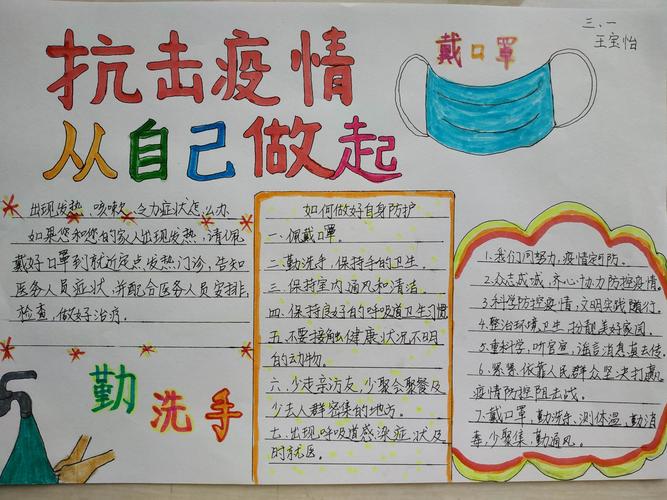 抗击疫情
从自己做起
戴口罩
三、一
王宝怡
出现发热、咳嗽、乏力症状怎么办
如果您和您的家人出现发热,请佩
戴好口罩到就近定点发热门诊,告知
医务人员症状,并配合医务人员安排
检查,做好治疗。
勤洗手
如何做好自身防护
一、佩戴口罩。
二、勤洗手,保持手的卫生。
三、保持室内通风和清洁。
四、保持良好的呼吸道卫生习惯
五、不要接触健康状况不明
的动物。
六、少走亲访友,少聚会聚餐及
少去人群密集的地方。
七、出现呼吸道感染症状及
时就医。
1.我们同努力,疫情定可防。
2.众志成城,齐心协力防控疫情。
3.科学防控疫情,文明实践随行。
4.整治环境卫生 扮靓美好家园。
5.重科学,听官宣,谣言消息莫去传。
6.紧紧依靠人民群众坚决打赢
疫情防控阻击战。
7.戴口罩,勤洗手、测体温,勤消
毒,少聚集,勤通风。